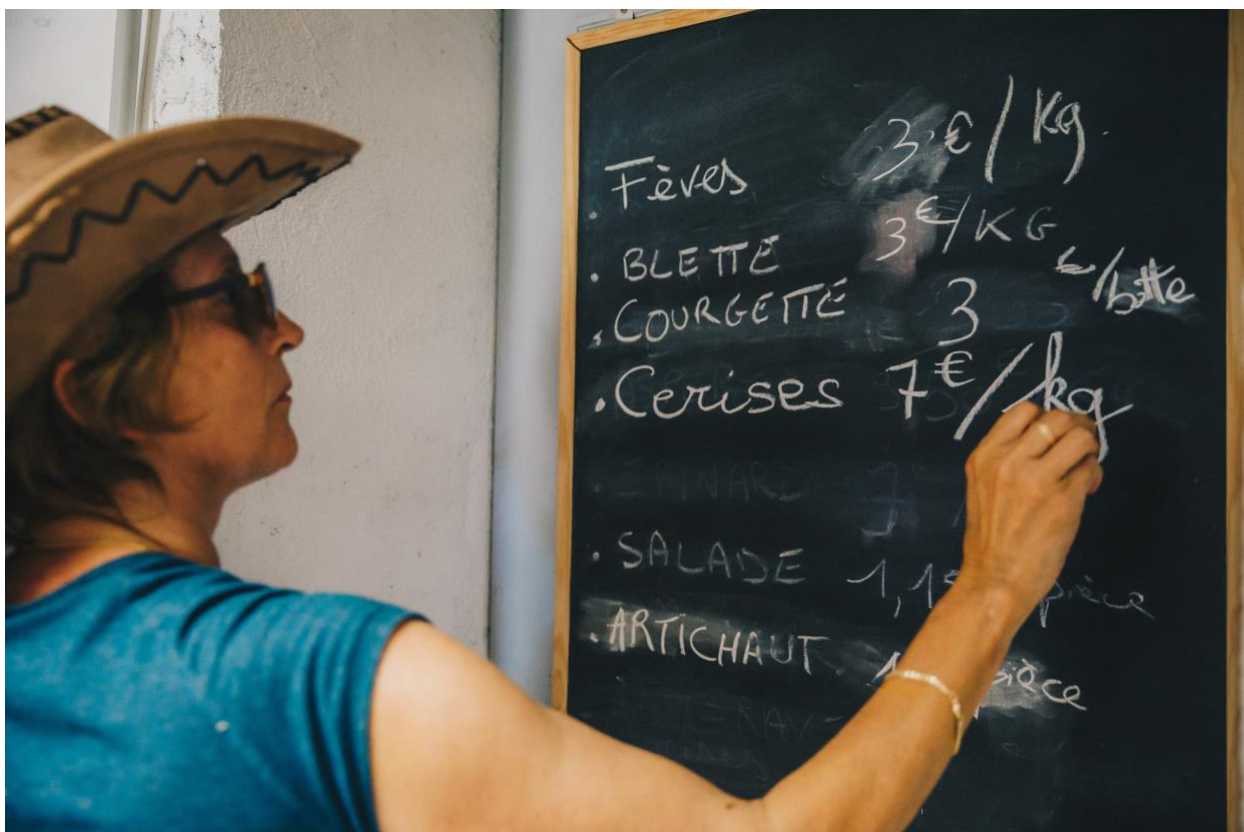 . Fèves 3 €/kg.
. BLETTE 3€/KG
. COURGETTE 3 €/botte
. Cerises 7€/kg
. SALADE 1,1 pièce
. ARTICHAUT. 1